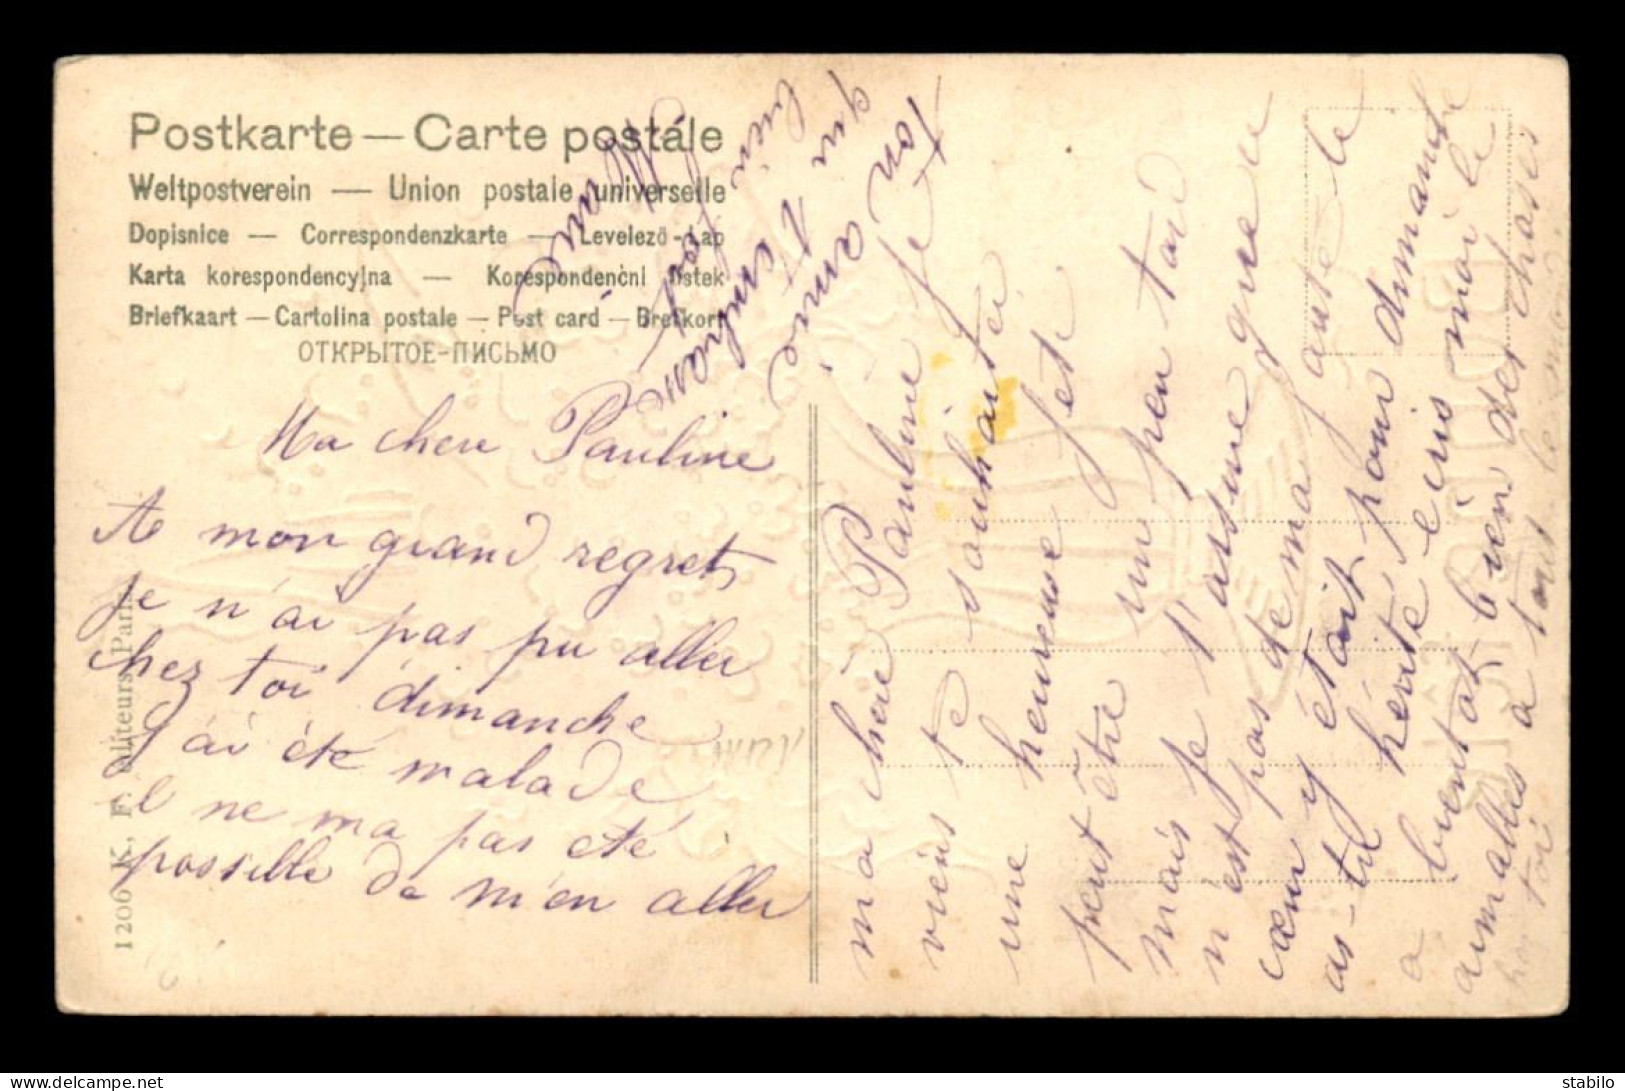 Postkarte — Carte postále
Weltpostverein — Union postale universelle
Dopisnice — Correspondenzkarte — Levelezö-Lap
Karta korespondencyjna — Korespondenčni listek
Briefkaart — Cartolina postale — Post card — Brefkort
ОТКРЫТОЕ-ПИСЬМО
1200 K, F. éditeurs, Paris
Ma chere Pauline
A mon grand regret
Je n'ai pas pu aller
chez toi dimanche
J'ai été malade
il ne ma pas eté
possible de m'en aller
ma chère Pauline je
viens te souhaiter
une heureuse fête
peut être un peu tard
mais je t'assure que ce
n'est pas de ma faute le
cœur y était pour dimanche
as-tu hérité écris moi le
a bientot bien des choses
aimables a tout
toi
ton amie
qui t'embrasse
bien fort
Marie
delcampe.net
stabilo